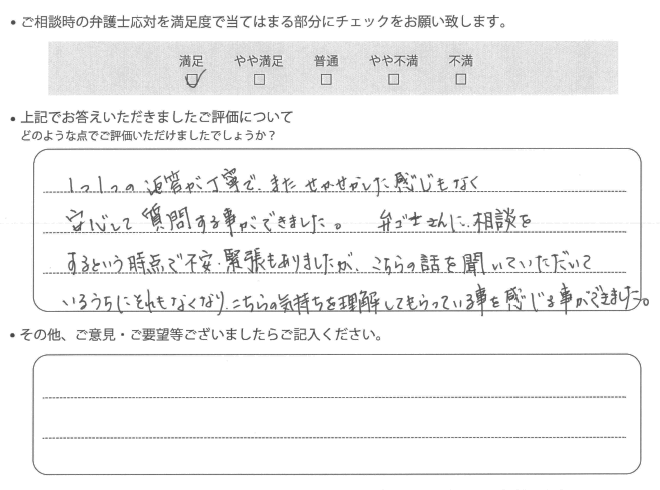 • ご相談時の弁護士応対を満足度で当てはまる部分にチェックをお願い致します。
満足 やや満足 普通 やや不満 不満
☑ □ □ □ □
• 上記でお答えいただきましたご評価について
どのような点でご評価いただけましたでしょうか？
1つ1つの返答が丁寧で、また せかせかした感じもなく
安心して質問する事ができました。 弁ゴ士さんに、相談を
するという時点で不安・緊張もありましたが、こちらの話を聞いていただいて
いるうちにそれもなくなり、こちらの気持ちを理解してもらっている事を感じる事ができました。
• その他、ご意見・ご要望等ございましたらご記入ください。